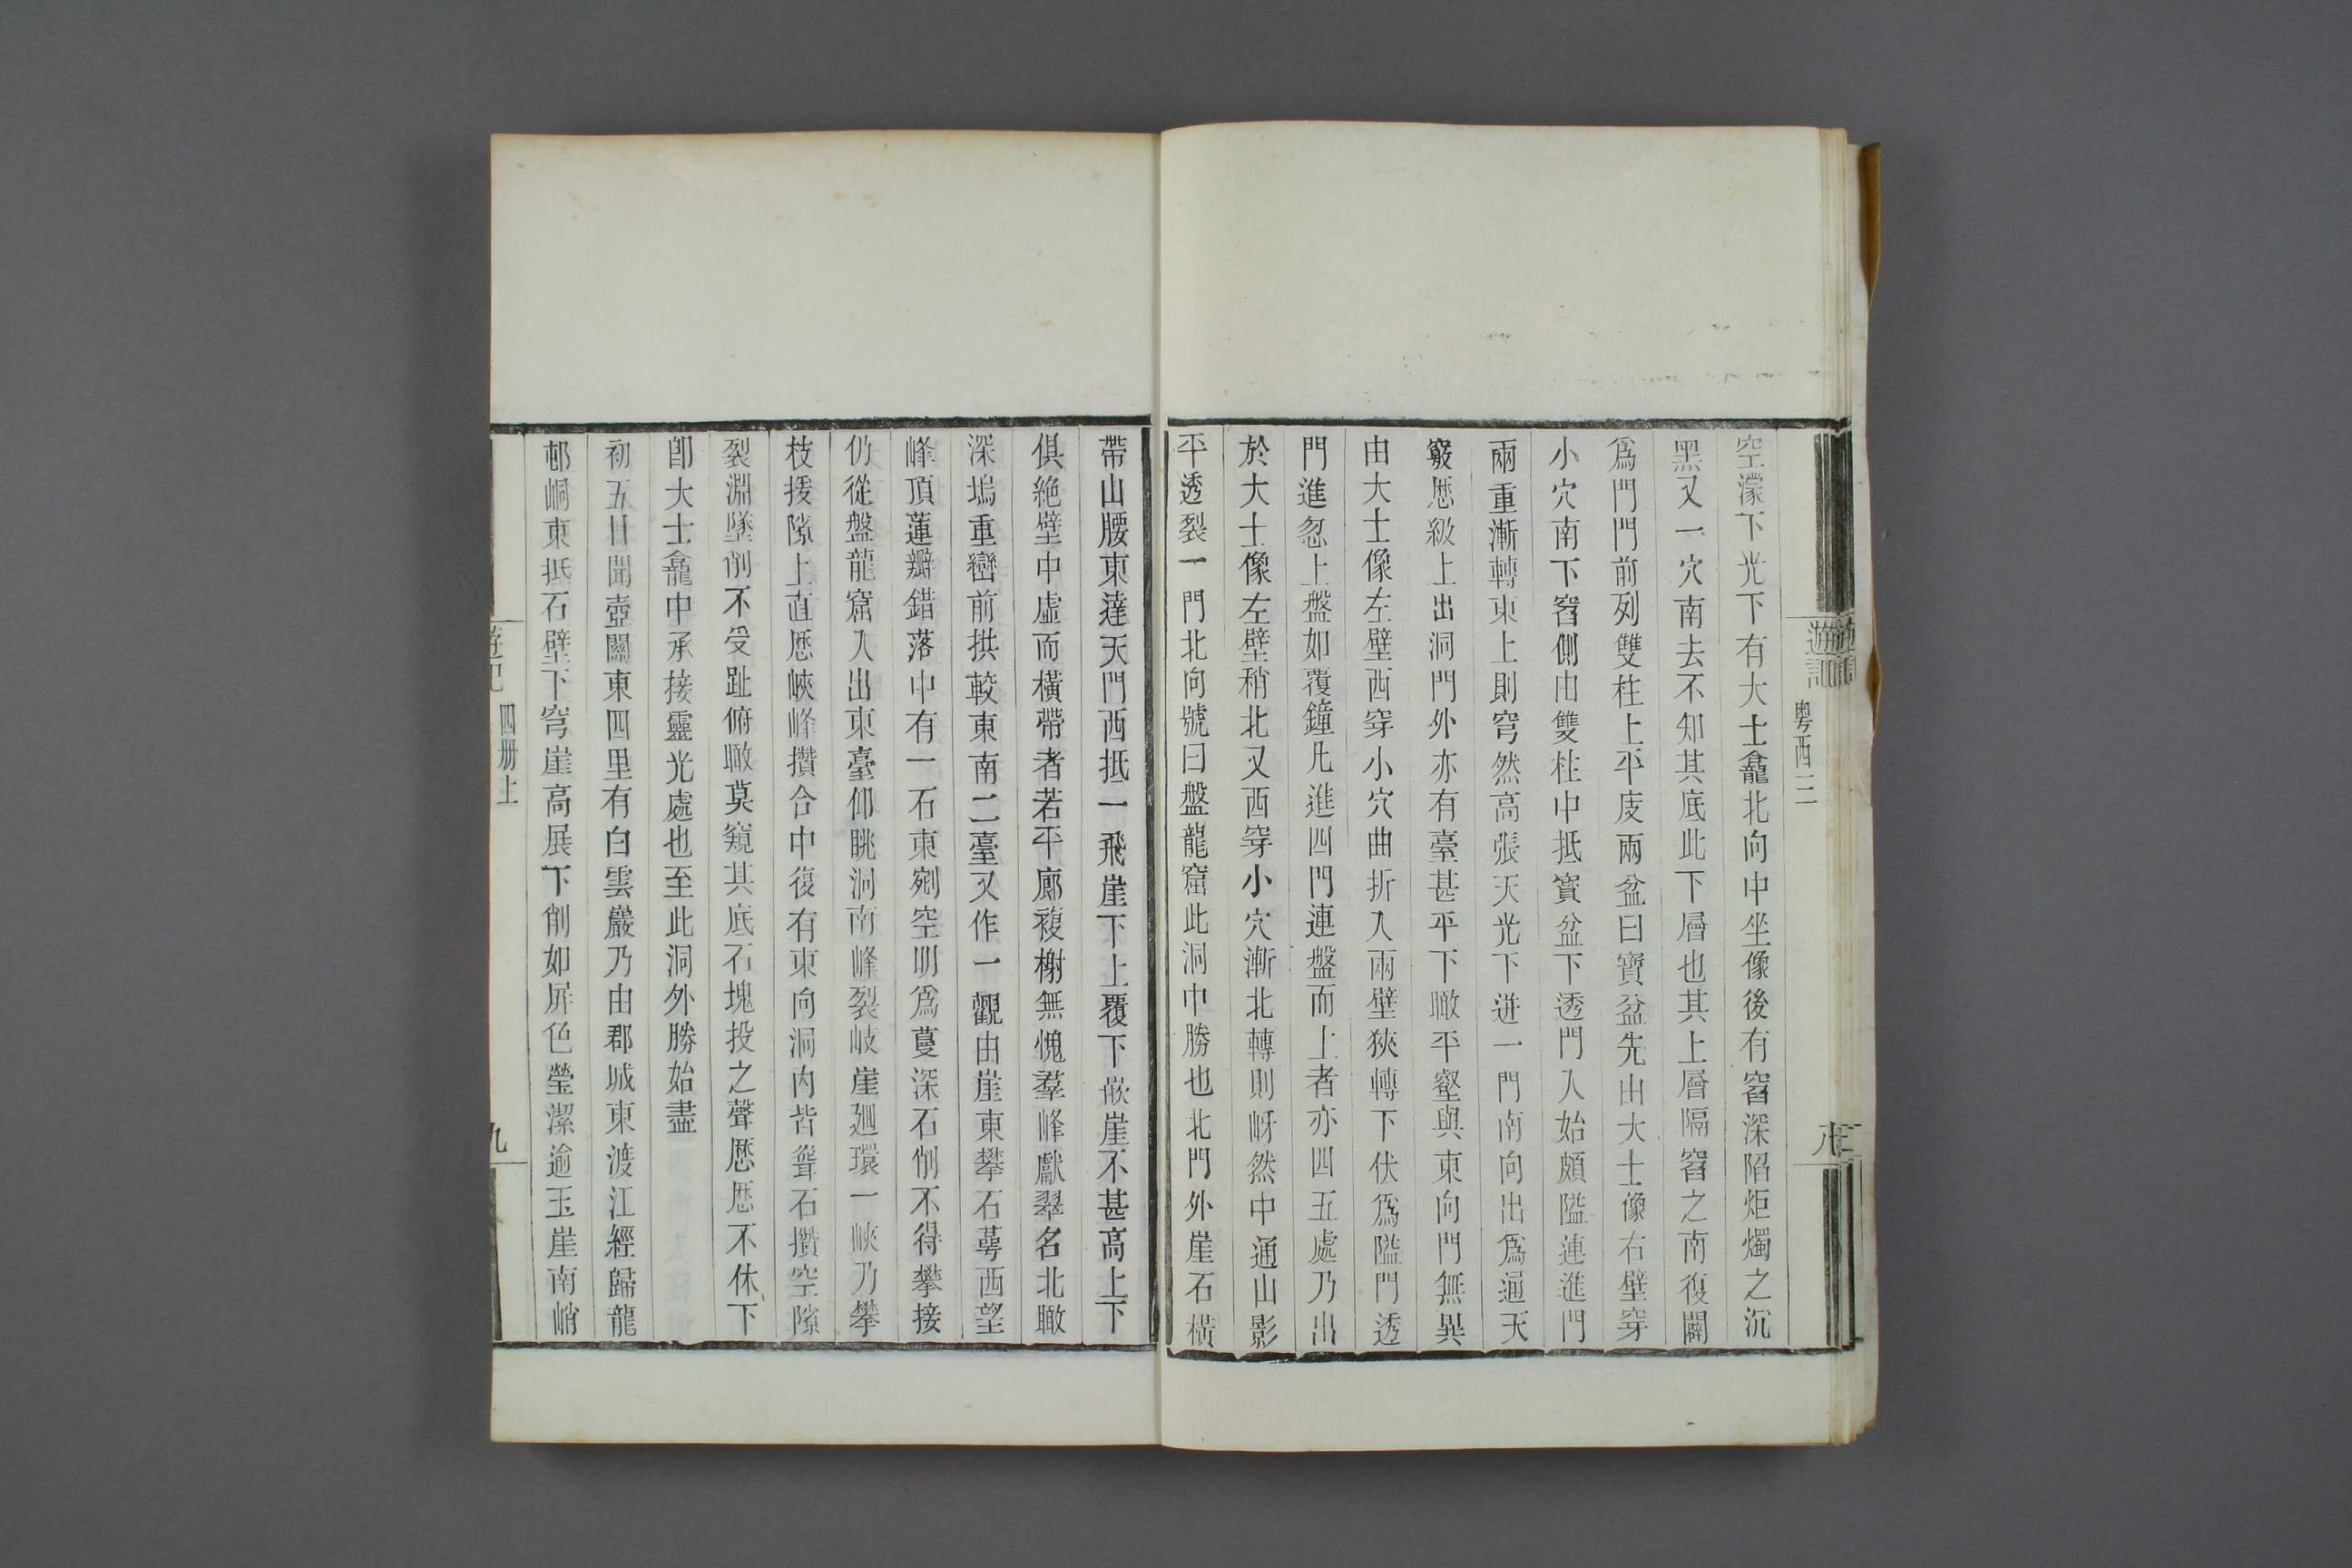 遊記
粤西二
八
空濛下光下有大士龕北向中坐像後有窞深陷炬燭之沉
黑又一穴南去不知其底此下層也其上層隔窞之南復闢
爲門門前列雙柱上平庋兩盆曰寶盆先由大士像右壁穿
小穴南下窞側由雙柱中抵寶盆下透門入始頗隘連進門
兩重漸轉東上則穹然高張天光下迸一門南向出爲通天
竅歷級上出洞門外亦有臺甚平下瞰平壑與東向門無異
由大士像左壁西穿小穴曲折入兩壁狹轉下伏爲隘門透
門進忽上盤如覆鐘凡進四門連盤而上者亦四五處乃出
於大士像左壁稍北又西穿小穴漸北轉則岈然中通山影
平透裂一門北向號曰盤龍窟此洞中勝也北門外崖石橫
帶山腰東達天門西抵一飛崖下上覆下嵌崖不甚高上下
俱絶壁中虛而橫帶者若平廊複榭無愧羣峰獻翠名北瞰
深塢重巒前拱較東南二臺又作一觀由崖東攀石蕚西望
峰頂蓮瓣錯落中有一石東剜空明爲蔓深石削不得攀接
仍從盤龍窟入出東臺仰眺洞南峰裂岐崖廻環一峽乃攀
枝援隙上直歷峽峰攢合中復有東向洞內皆聳石攢空隙
裂淵墜削不受趾俯瞰莫窺其底石塊投之聲歷歷不休下
卽大士龕中承接靈光處也至此洞外勝始盡
初五日聞壺關東四里有白雲巖乃由郡城東渡江經歸龍
邨峒東抵石壁下穹崖高展下削如屏色瑩潔逾玉崖南峭
遊記
四册上
九